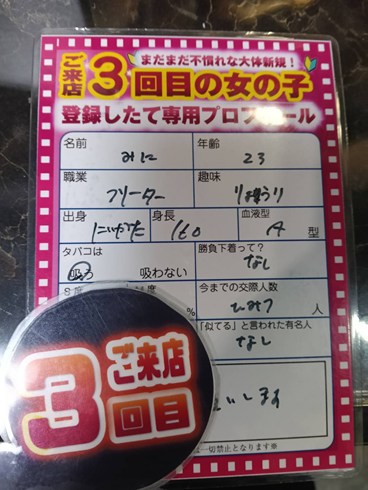 まだまだ不慣れな大体新規！
ご来店3回目の女の子
登録したて専用プロフィール
名前 みに 年齢 23
職業 フリーター 趣味 りょうり
出身 にいがた 身長 160 血液型 A 型
タバコは 吸う 吸わない 勝負下着って？ なし
% 今までの交際人数 ひみつ 人
「似てる」と言われた有名人 なし
します
一切禁止となります※
3
ご来店
回目